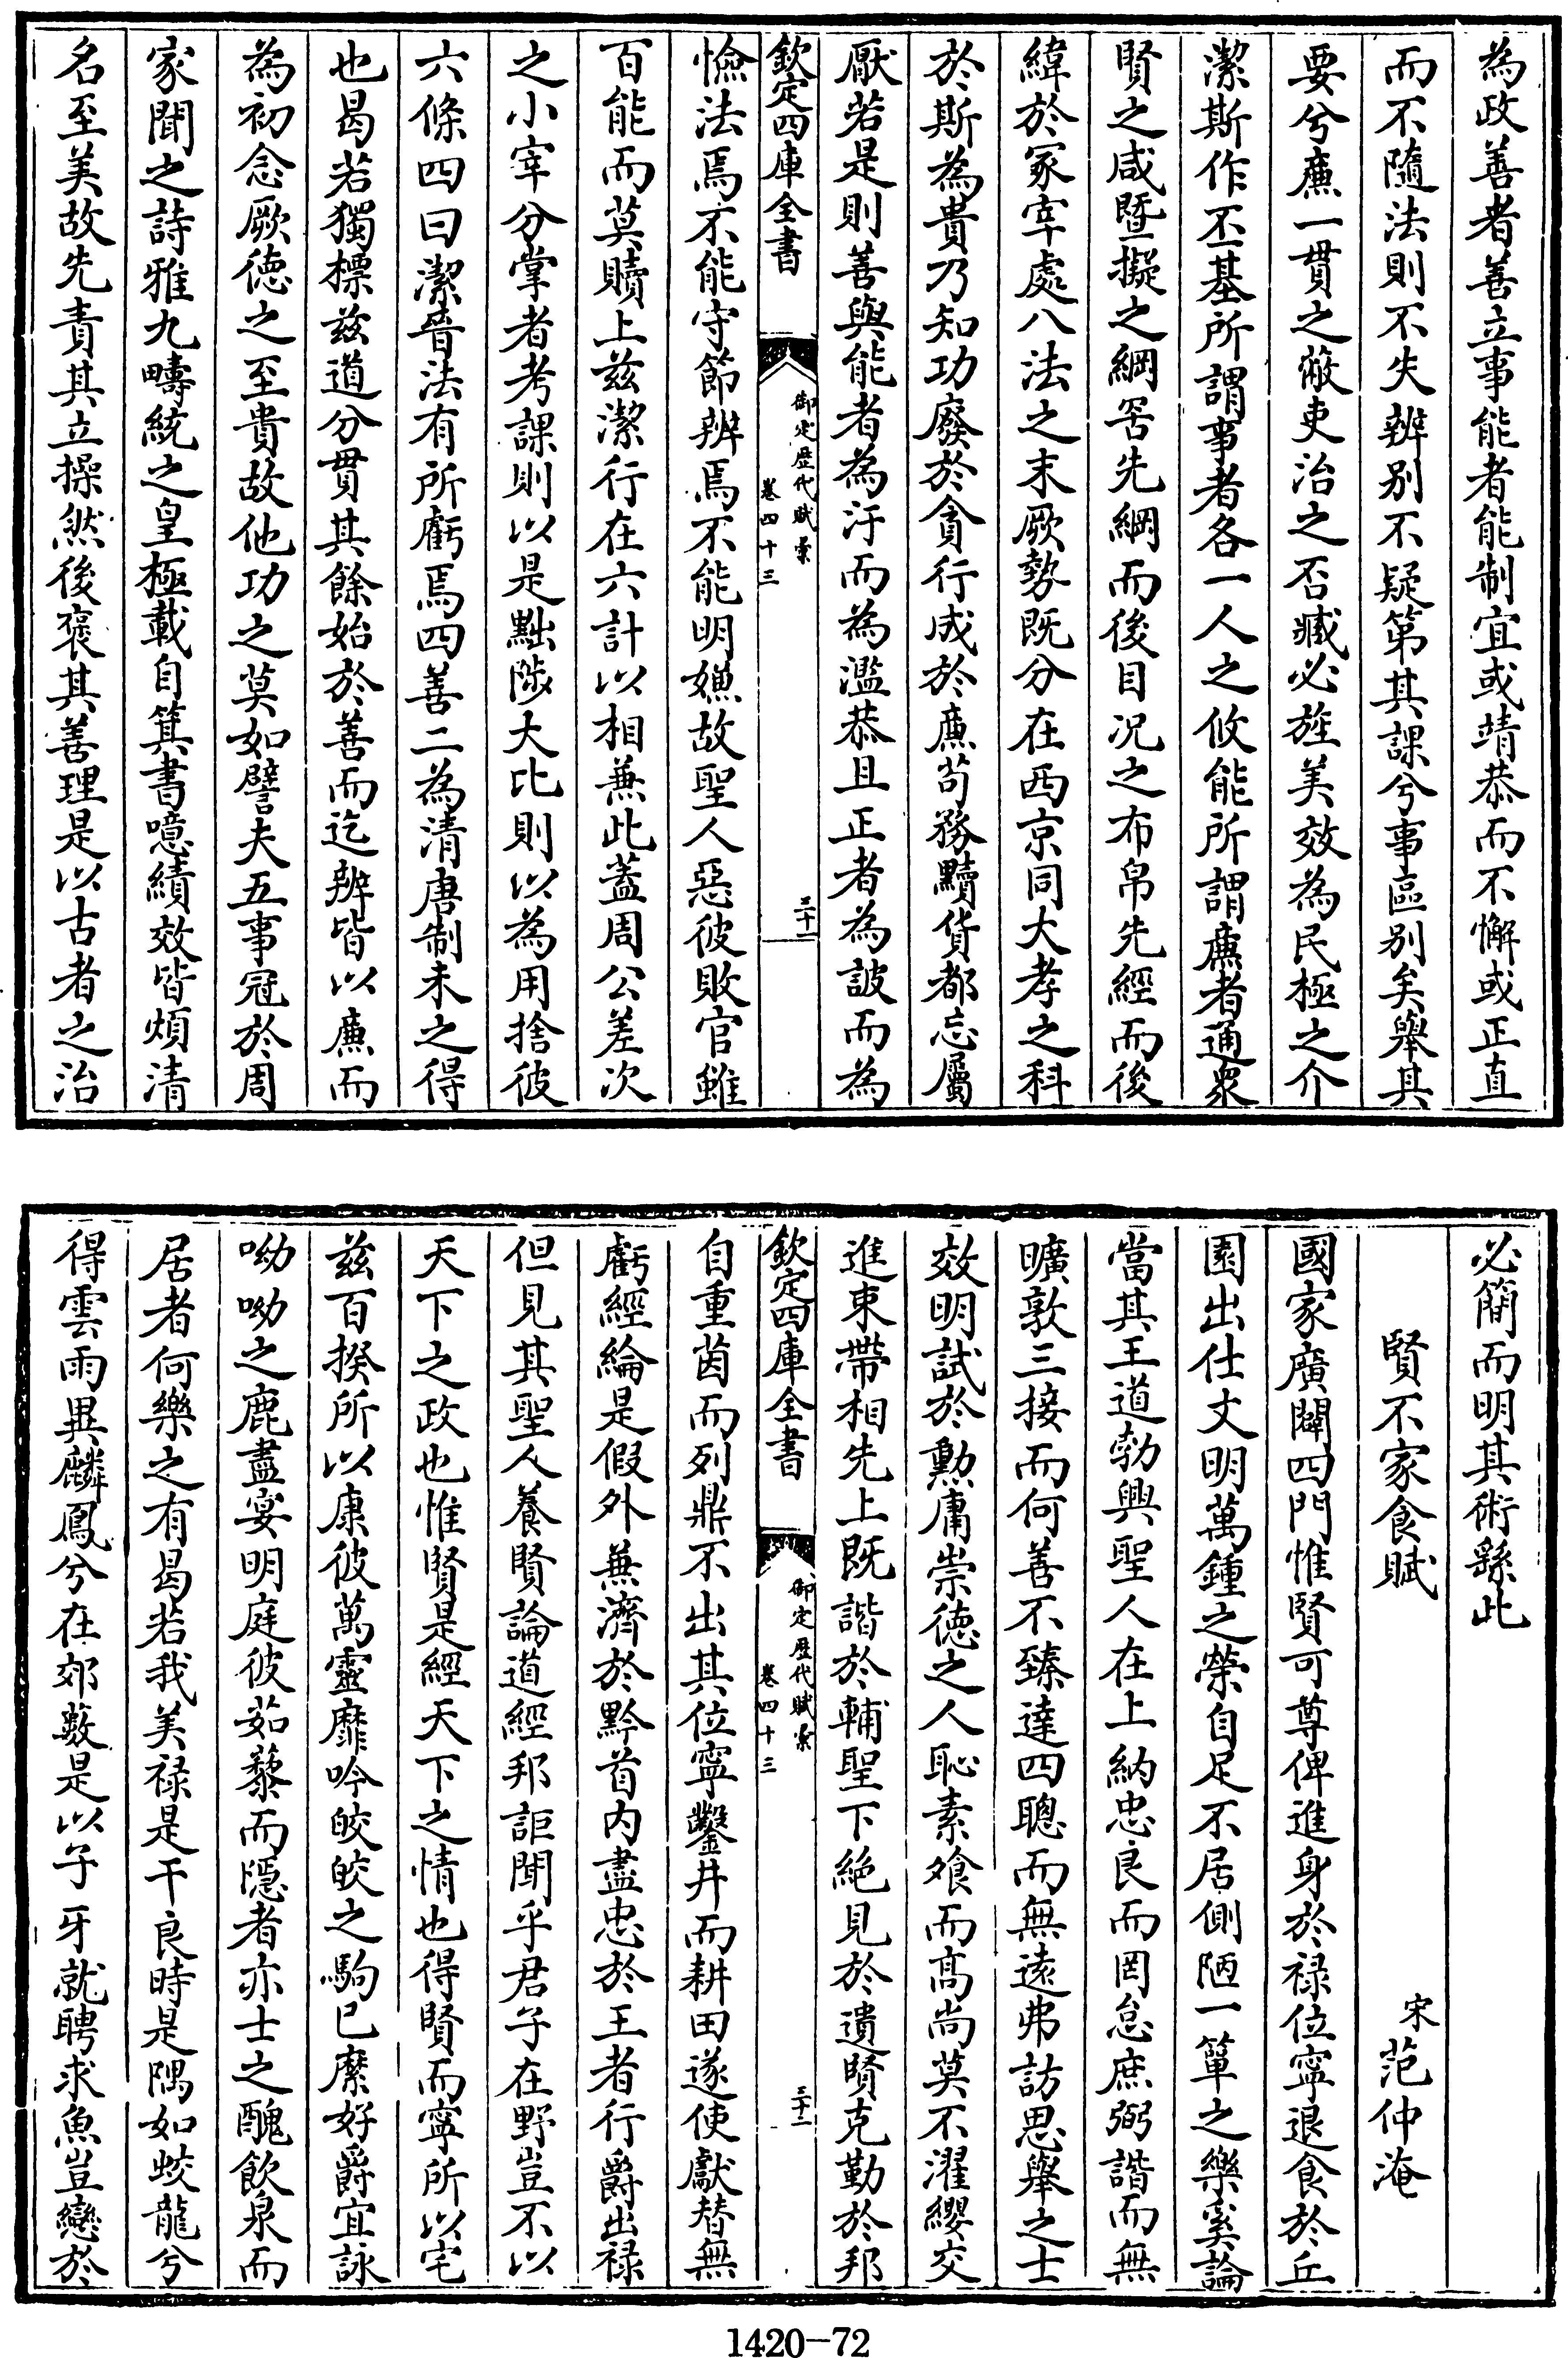 為政善者善立事能者能制宜或靖恭而不懈或正直
而不隨法則不失辨别不疑第其課兮事區别矣舉其
要兮廉一貫之蔽吏治之否臧必旌美效為民極之介
潔斯作丕基所謂事者各一人之攸能所謂廉者通衆
賢之咸暨擬之綱罟先綱而後目况之布帛先經而後
緯於冢宰處八法之末厥勢既分在西京同大孝之科
於斯為貴乃知功廢於貪行成於廉苟務黷貨都忘屬
厭若是則善與能者為汙而為濫恭且正者為詖而為
欽定四庫全書
御定歴代賦彚
卷四十三
三十一
憸法焉不能守節辨焉不能明嫌故聖人惡彼敗官雖
百能而莫贖上兹潔行在六計以相兼此蓋周公差次
之小宰分掌者考課則以是黜陟大比則以為用捨彼
六條四曰潔晉法有所虧焉四善二為清唐制未之得
也曷若獨標兹道分貫其餘始於善而迄辨皆以廉而
為初念厥德之至貴故他功之莫如譬夫五事冠於周
家聞之詩雅九疇統之皇極載自箕書噫績效皆煩清
名至美故先責其立操然後褒其善理是以古者之治
必簡而明其術繇此
賢不家食賦
宋范仲淹
國家廣闢四門惟賢可尊俾進身於禄位寧退食於丘
園出仕文明萬鍾之榮自足不居側陋一簞之樂奚論
當其王道勃興聖人在上納忠良而罔怠庶弼諧而無
曠敦三接而何善不臻達四聰而無遠弗訪思舉之士
效明試於勲庸崇德之人恥素飧而高尚莫不濯纓交
進束帶相先上既諧於輔聖下絶見於遺賢克勤於邦
欽定四庫全書
御定歴代賦彚
卷四十三
三十二
自重茵而列鼎不出其位寧鑿井而耕田遂使獻替無
虧經綸是假外無濟於黔首内盡忠於王者行爵出禄
但見其聖人養賢論道經邦詎聞乎君子在野豈不以
天下之政也惟賢是經天下之情也得賢而寧所以宅
兹百揆所以康彼萬靈靡吟皎皎之駒已縻好爵宜詠
呦呦之鹿盡宴明庭彼茹藜而隱者亦士之醜飲泉而
居者何樂之有曷若我美禄是干良時是隅如蛟龍兮
得雲雨異麟鳳兮在郊藪是以子牙就聘求魚豈戀於
1420-72